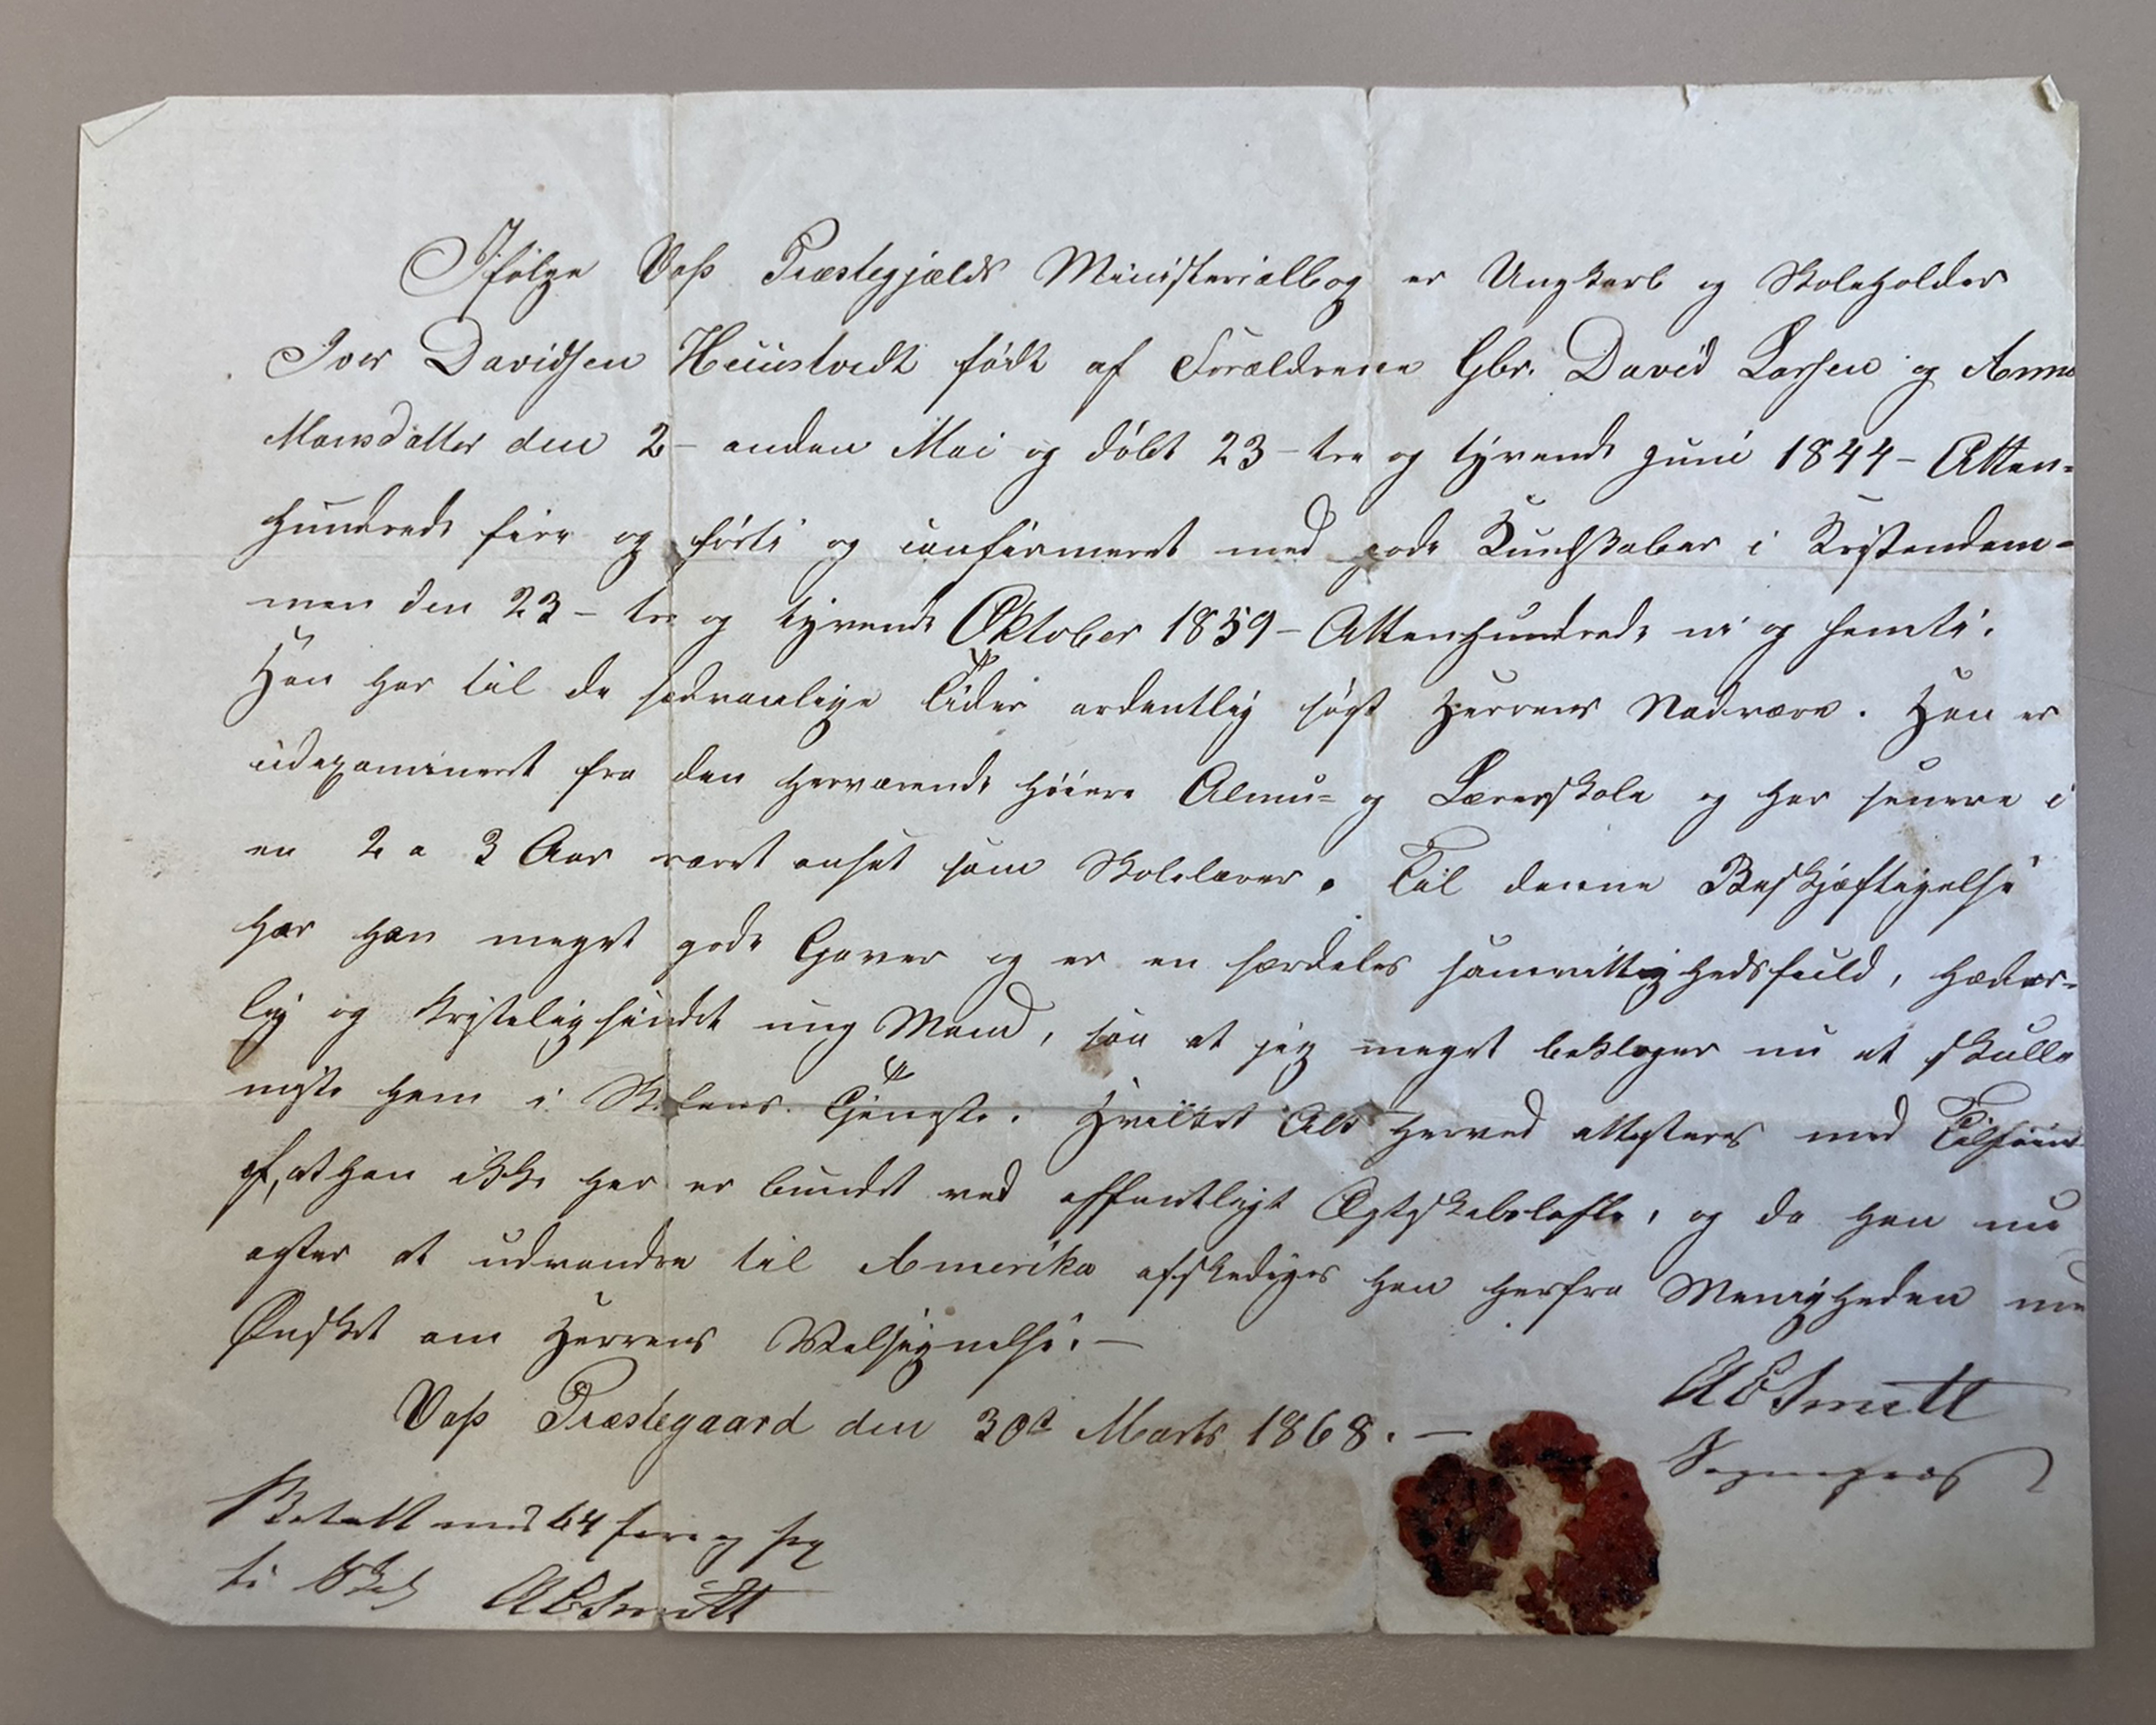 Ifølge Voss Præstegjælds Ministerialbog er Ungkarl og Skoleholder
Iver Davidsen Heiustvedt født af Forældrene Gbr. David Larsen og Anna
Monsdatter den 2 – anden Mai og døbt 23 – tre og tyvende Juni 1844 – Atten=
hundrede fire og førti og confirmeret med gode Kundskaber i Kristendom=
men den 23 – tre og tyvende Oktober 1859 – Attenhundrede ni og femti.
Han har til de sædvanlige Tider ordentlig søgt Herrens Nadvere. Han er
udexamineret fra den herværende høiere Almu= og Lærerskole og har senere i
en 2 a 3 Aar været ansat som Skolelærer. Til denne Beskjæftigelse
har han meget gode Gaver og er en særdeles samvittighedsfuld, hæder=
lig og kristeligsindet ung Mand, saa at jeg meget beklager nu at skulle
miste ham i Skolens Tjeneste. Hvilket Alt herved attesteres med Tilføiende
af, at han ikke her er bundet ved offentligt Ægteskabsløfte, og da han nu
agter at udvandre til Amerika afskediges han herfra Menigheden med
Ønsket om Herrens Velsignelse. –
Voss Præstegaard den 30te Marts 1868. –
A E Smitt
Sogneprest
Betalt med 64 fire og sex
ti Skill A E Smitt